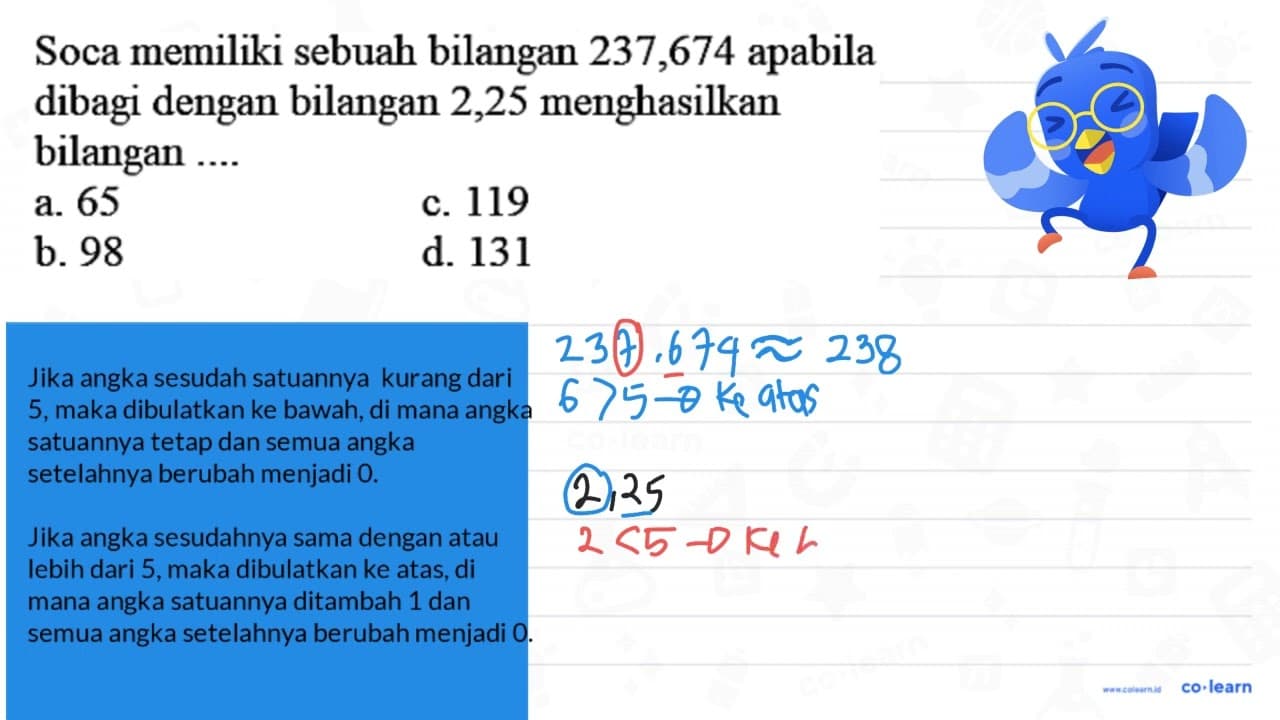 Soca memiliki sebuah bilangan 237,674 apabila
dibagi dengan bilangan 2,25 menghasilkan
bilangan ....
a. 65 c. 119
b. 98 d. 131
Jika angka sesudah satuannya kurang dari
5, maka dibulatkan ke bawah, di mana angka
satuannya tetap dan semua angka
setelahnya berubah menjadi 0.
Jika angka sesudahnya sama dengan atau
lebih dari 5, maka dibulatkan ke atas, di
mana angka satuannya ditambah 1 dan
semua angka setelahnya berubah menjadi 0.
237.674 ≈ 238
6 > 5 → ke atas
2,25
2 < 5 → ke
www.colearn.id co·learn